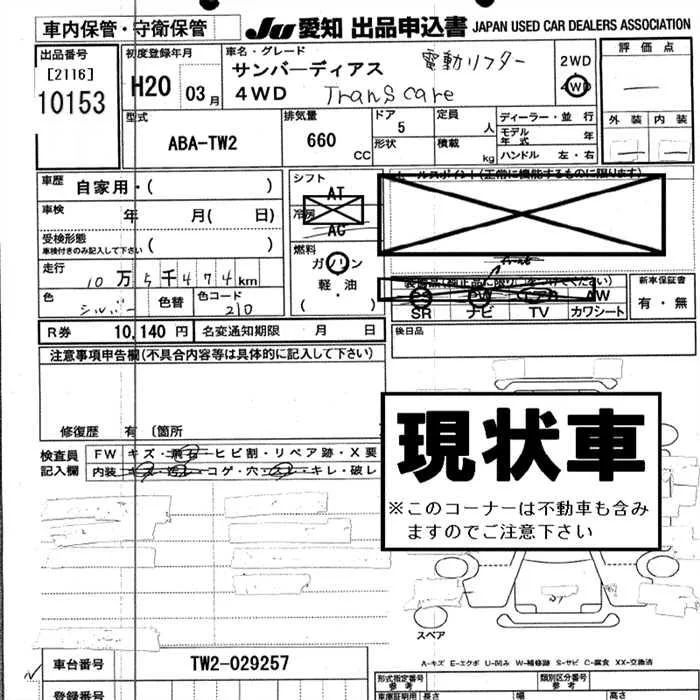 車内保管・守衛保管
JU 愛知 出品申込書 JAPAN USED CAR DEALERS ASSOCIATION
出品番号
[2116]
10153
初度登録年月
H20 03 月
車名・グレード
サンバーディアス 電動リフター
4WD Transcare
2WD
4WD
評価点
外装 内装
型式
ABA-TW2
排気量
660 CC
ドア
5
形状
定員 人
積載 kg
ディーラー・並行
モデル年式 年
ハンドル 左・右
車歴 自家用・( )
車検 年 月( 日)
受検形態
車検付きのみ記入して下さい ( )
走行 10万5千474km
色 シルバー 色替 色コード 210
シフト
AT
冷房
AC
燃料
ガソリン
軽油
・
( )
R券 10,140 円 名変通知期限 月 日
セールスポイント(正常に機能するものに限ります)
SR ナビ TV カワシート
AW
新車保証書
有・無
後日品
注意事項申告欄(不具合内容等は具体的に記入して下さい)
修復歴 有 〔箇所
検査員
記入欄
FW キズ・飛石・ヒビ割・リペア跡・X要
内装 キズ・汚レ・コゲ・穴・スレ・キレ・破レ
現状車
※このコーナーは不動車も含み
ますのでご注意下さい
スペア
A-キズ E-エクボ U-凹み W-補修跡 S-サビ C-腐食 XX-交換済
車台番号 TW2-029257
登録番号
形式指定番号
参考
類別区分番号
参考
車庫証明用 長さ 幅 高さ